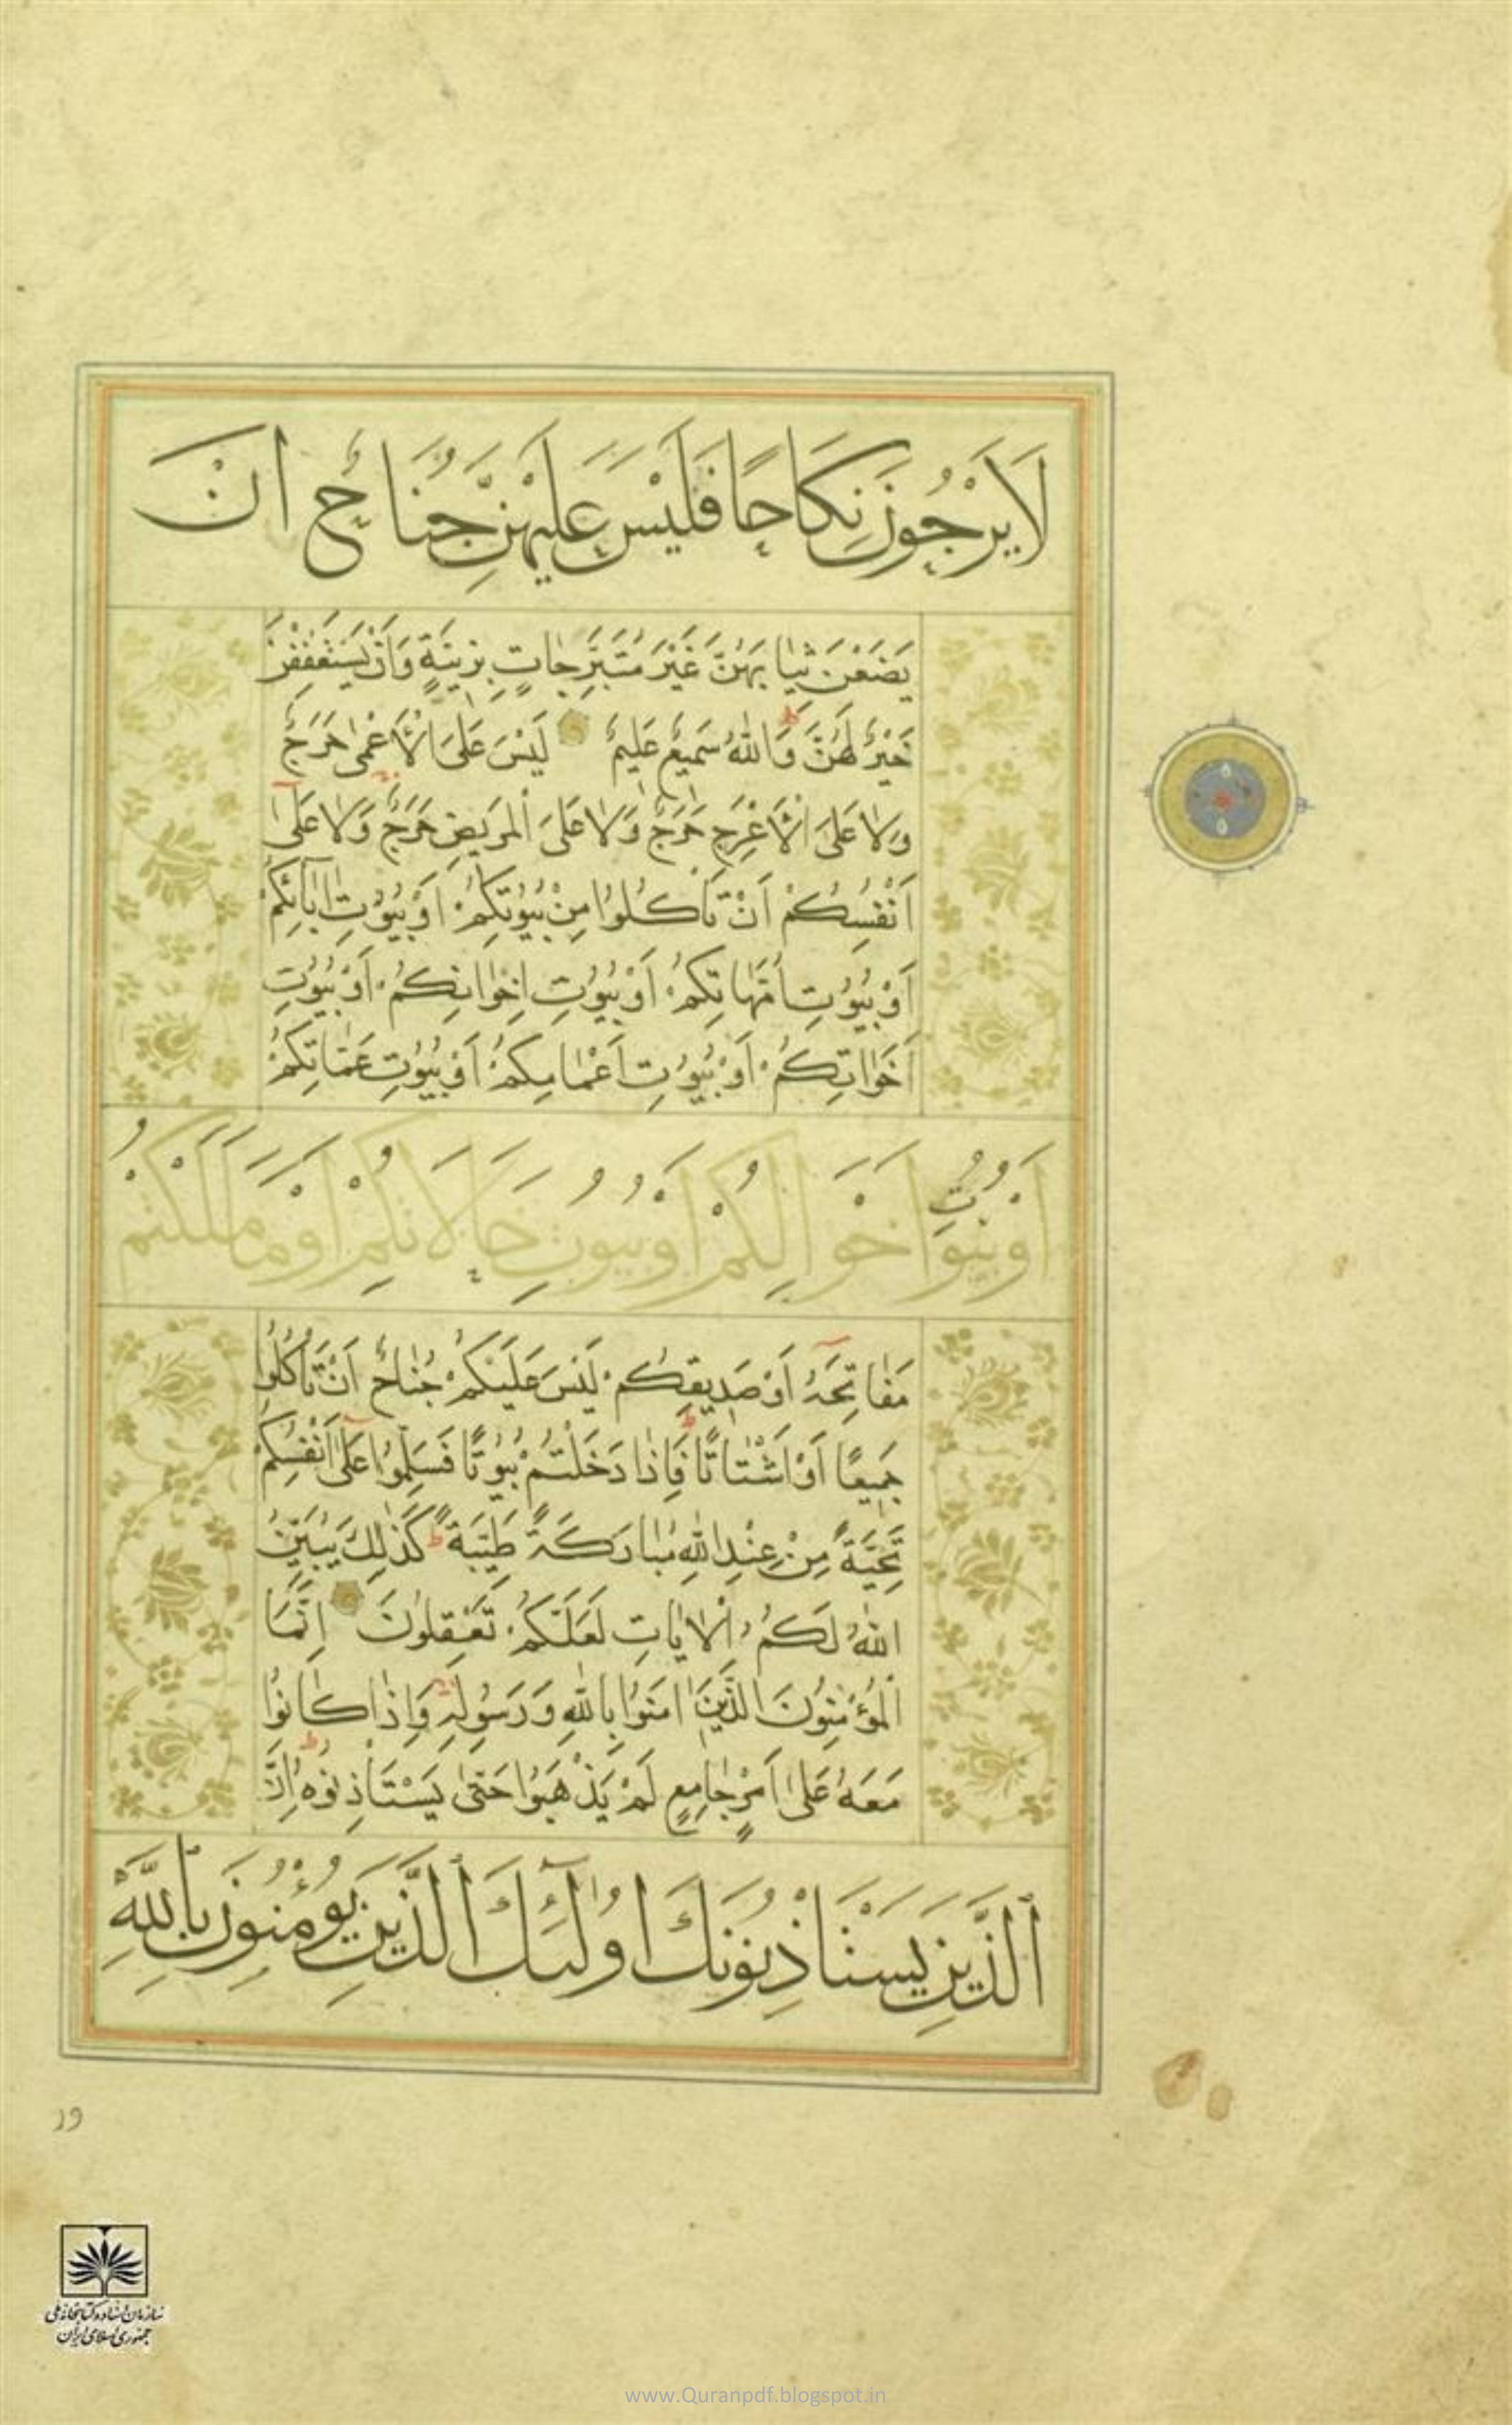 لَا يَرْجُونَ نِكَاحًا فَلَيْسَ عَلَيْهِنَّ جُنَاحٌ اَنْ
يَضَعْنَ ثِيَابَهُنَّ غَيْرَ مُتَبَرِّجَاتٍ بِزِينَةٍ وَاَنْ يَسْتَعْفِفْنَ
خَيْرٌ لَهُنَّ وَاللّٰهُ سَمِيعٌ عَلِيمٌ لَيْسَ عَلَى الْاَعْمٰى حَرَجٌ
وَلَا عَلَى الْاَعْرَجِ حَرَجٌ وَلَا عَلَى الْمَرِيضِ حَرَجٌ وَلَا عَلٰى
اَنْفُسِكُمْ اَنْ تَاْكُلُوا مِنْ بُيُوتِكُمْ اَوْ بُيُوتِ اٰبَائِكُمْ
اَوْ بُيُوتِ اُمَّهَاتِكُمْ اَوْ بُيُوتِ اِخْوَانِكُمْ اَوْ بُيُوتِ
اَخَوَاتِكُمْ اَوْ بُيُوتِ اَعْمَامِكُمْ اَوْ بُيُوتِ عَمَّاتِكُمْ
اَوْ بُيُوتِ اَخْوَالِكُمْ اَوْ بُيُوتِ خَالَاتِكُمْ اَوْ مَا مَلَكْتُمْ
مَفَاتِحَهُ اَوْ صَدِيقِكُمْ لَيْسَ عَلَيْكُمْ جُنَاحٌ اَنْ تَاْكُلُوا
جَمِيعًا اَوْ اَشْتَاتًا فَاِذَا دَخَلْتُمْ بُيُوتًا فَسَلِّمُوا عَلٰى اَنْفُسِكُمْ
تَحِيَّةً مِنْ عِنْدِ اللّٰهِ مُبَارَكَةً طَيِّبَةً كَذٰلِكَ يُبَيِّنُ
اللّٰهُ لَكُمُ الْاٰيَاتِ لَعَلَّكُمْ تَعْقِلُونَ اِنَّمَا
الْمُؤْمِنُونَ الَّذِينَ اٰمَنُوا بِاللّٰهِ وَرَسُولِهِ وَاِذَا كَانُوا
مَعَهُ عَلٰى اَمْرٍ جَامِعٍ لَمْ يَذْهَبُوا حَتّٰى يَسْتَاْذِنُوهُ اِنَّ
الَّذِينَ يَسْتَاْذِنُونَكَ اُولٰئِكَ الَّذِينَ يُؤْمِنُونَ بِاللّٰهِ
ور
سازمان اسناد و کتابخانه ملی
جمهوری اسلامی ایران
www.Quranpdf.blogspot.in